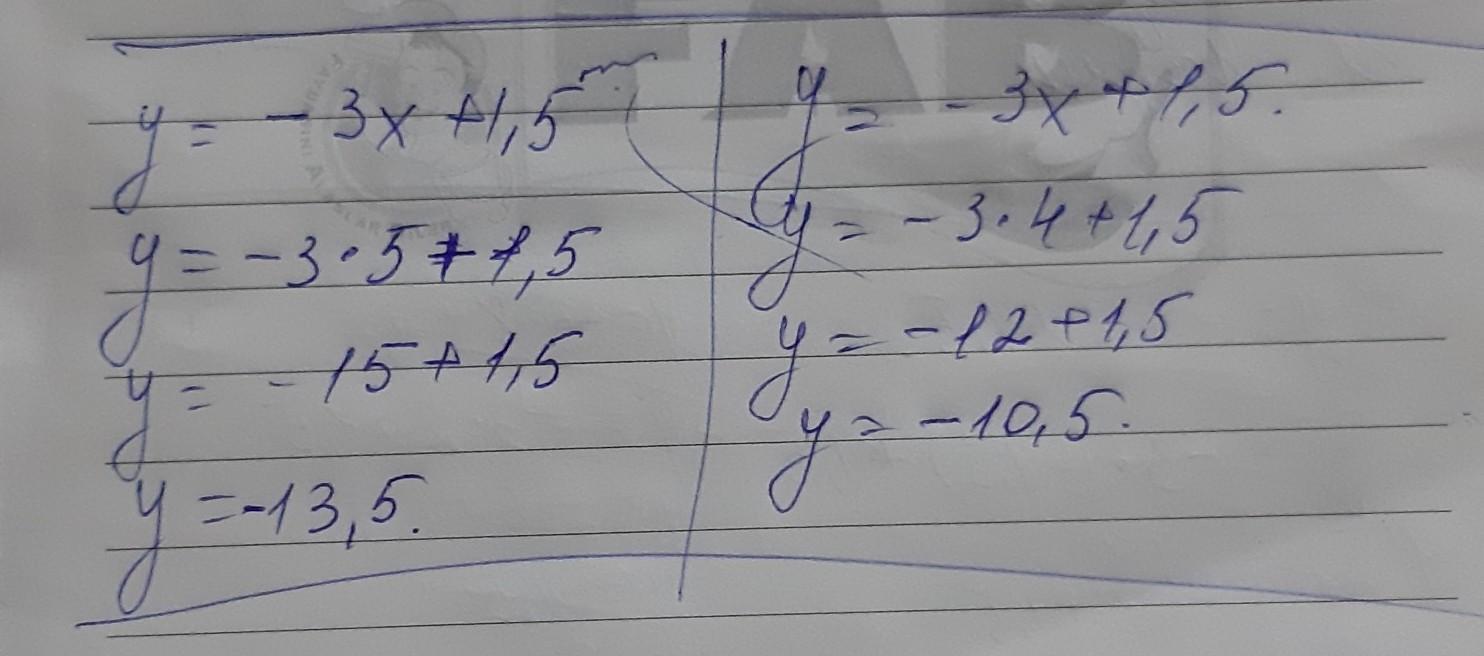 y = - 3x + 1,5
y = - 3 · 5 + 1,5
y = - 15 + 1,5
y = - 13,5.
y = - 3x + 1,5.
y = - 3 · 4 + 1,5
y = - 12 + 1,5
y = - 10,5.